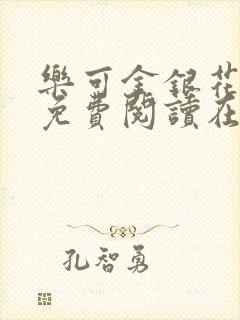 樂可金銀花
免費閱讀在
孔智勇